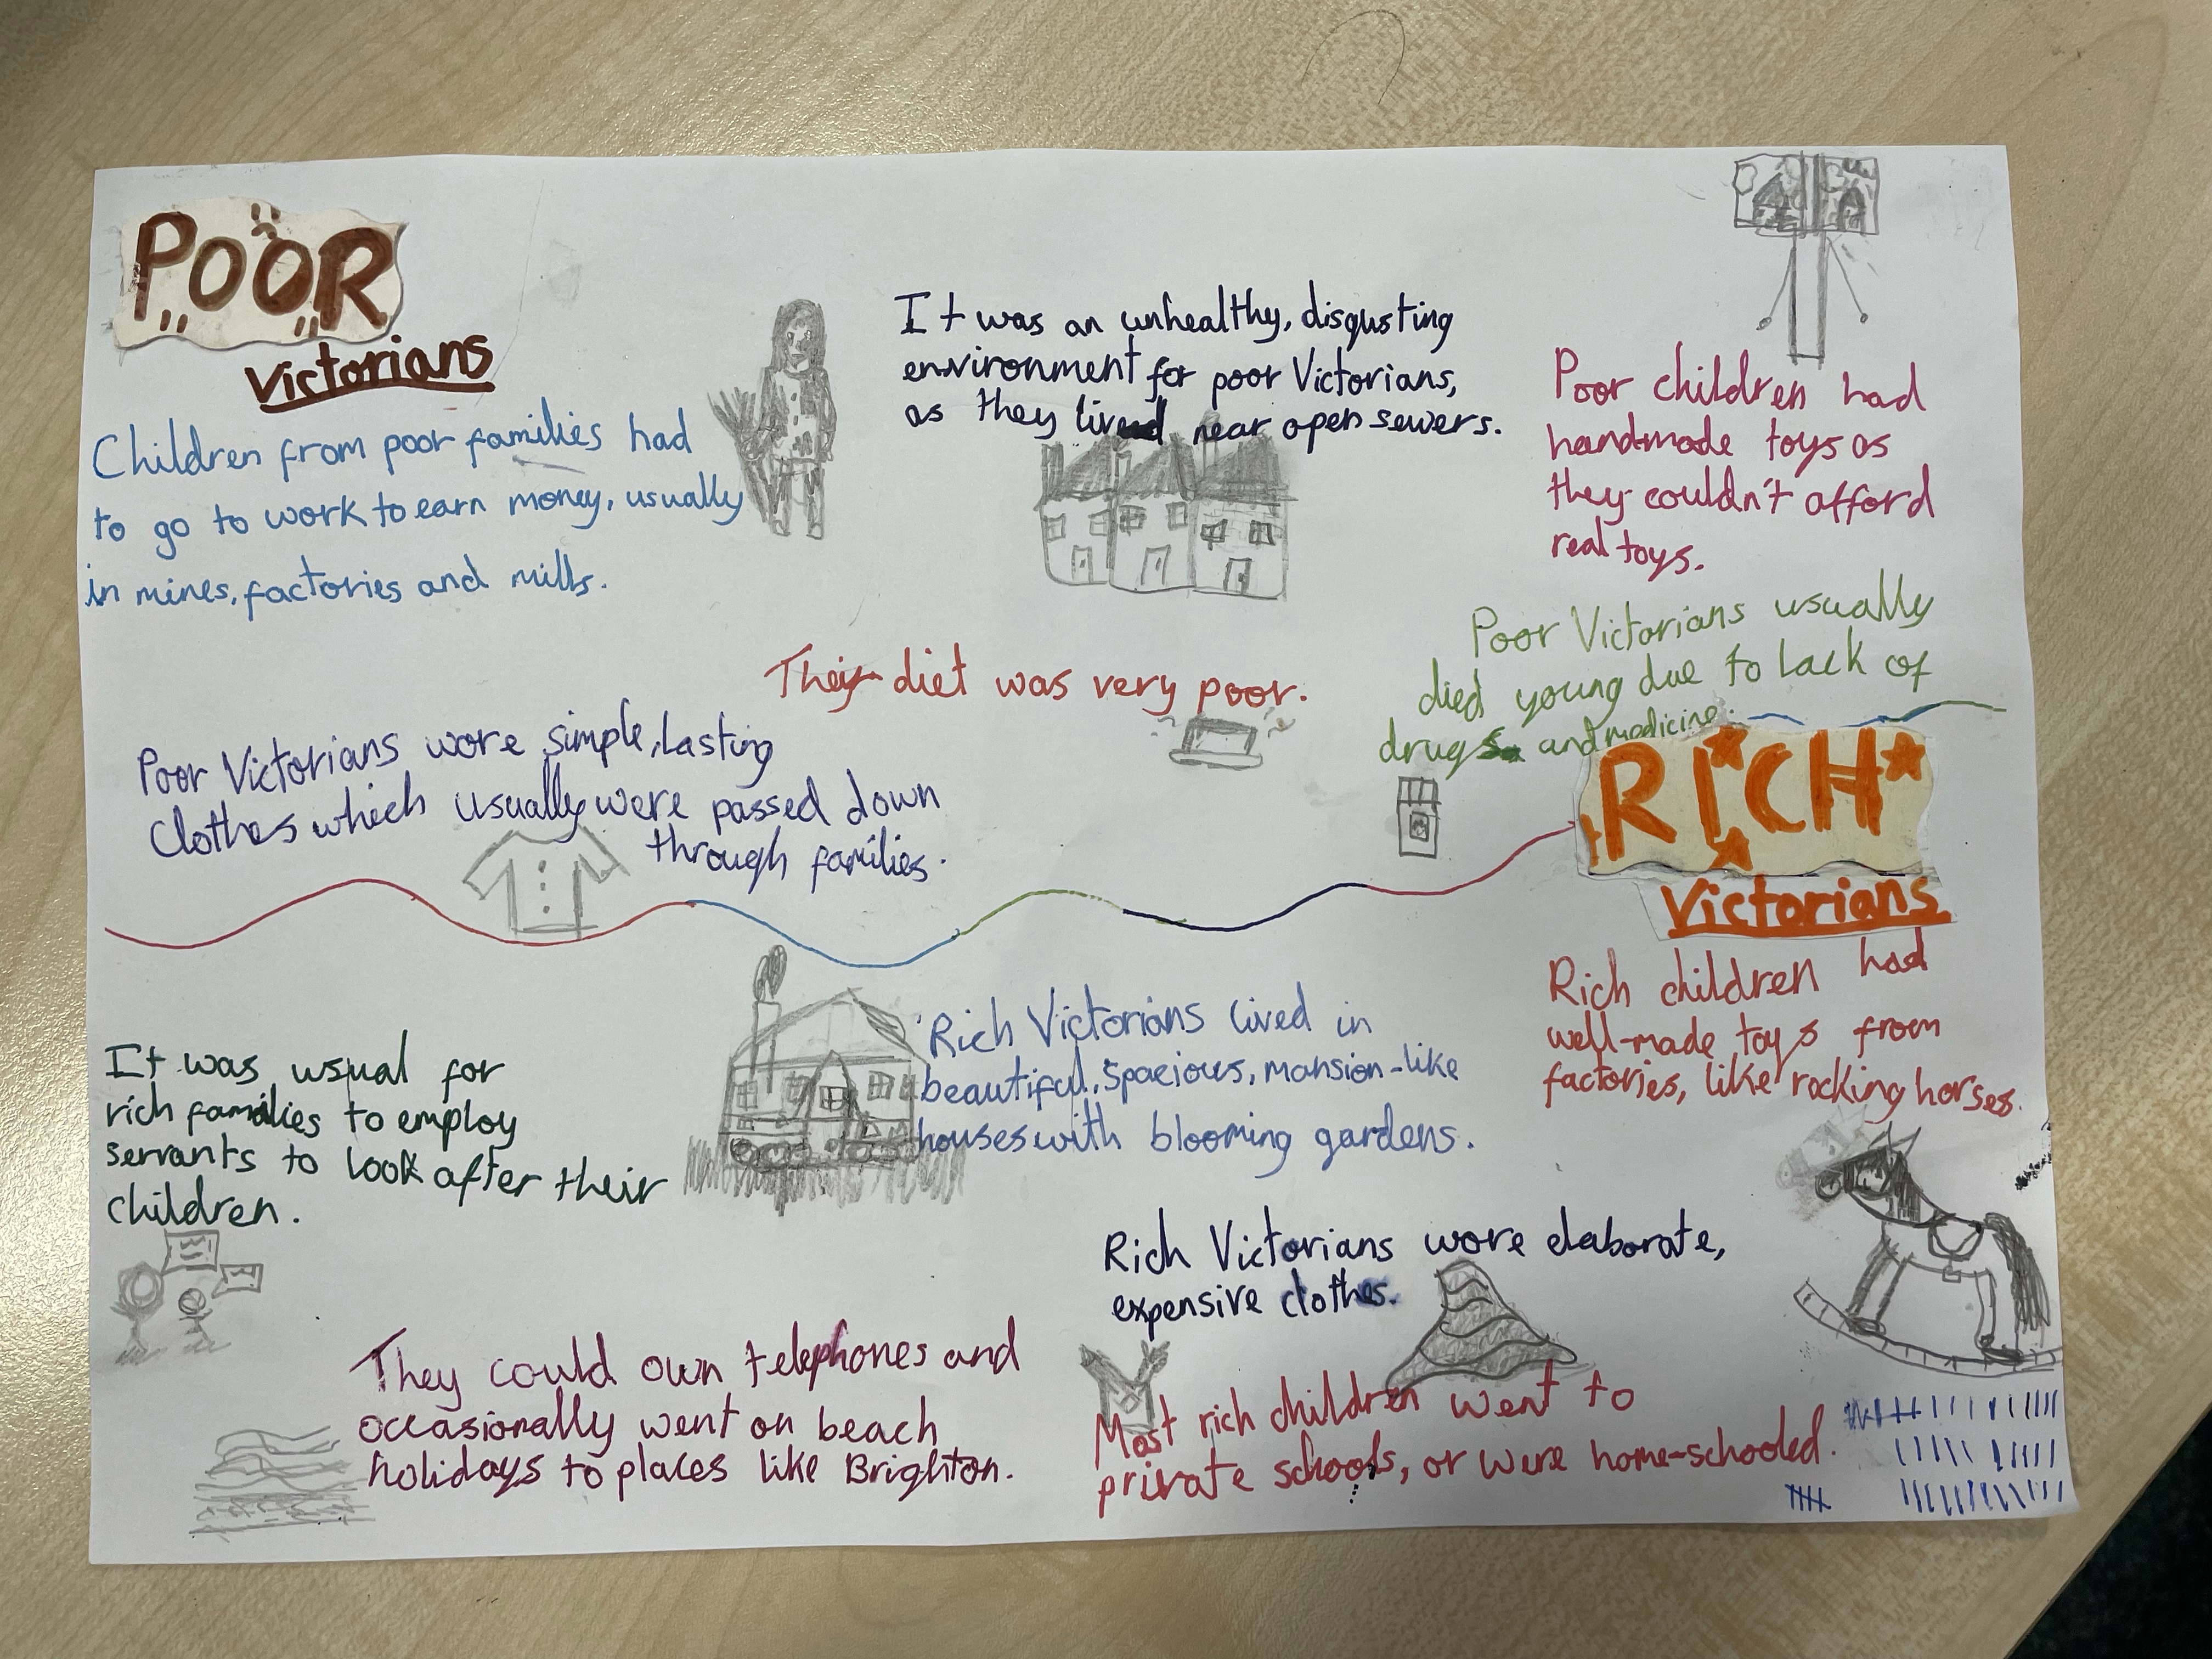 POOR
Victorians
Children from poor families had
to go to work to earn money, usually
in mines, factories and mills.
It was an unhealthy, disgusting
environment for poor Victorians,
as they lived near open sewers.
Poor children had
handmade toys as
they couldn't afford
real toys.
Their diet was very poor.
Poor Victorians usually
died young due to lack of
drugs and medicine.
Poor Victorians wore simple, lasting
clothes which usually were passed down
through families.
RICH
Victorians
Rich children had
well-made toys from
factories, like rocking horses.
It was usual for
rich families to employ
servants to look after their
children.
Rich Victorians lived in
beautiful, spacious, mansion-like
houses with blooming gardens.
Rich Victorians wore elaborate,
expensive clothes.
They could own telephones and
occasionally went on beach
holidays to places like Brighton.
Most rich children went to
private schools, or were home-schooled.